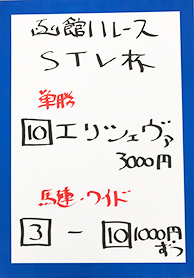 函館11レース
STV杯
単勝
10 エリシェヴァ
3000円
馬連・ワイド
3 - 10 1000円
ずつ